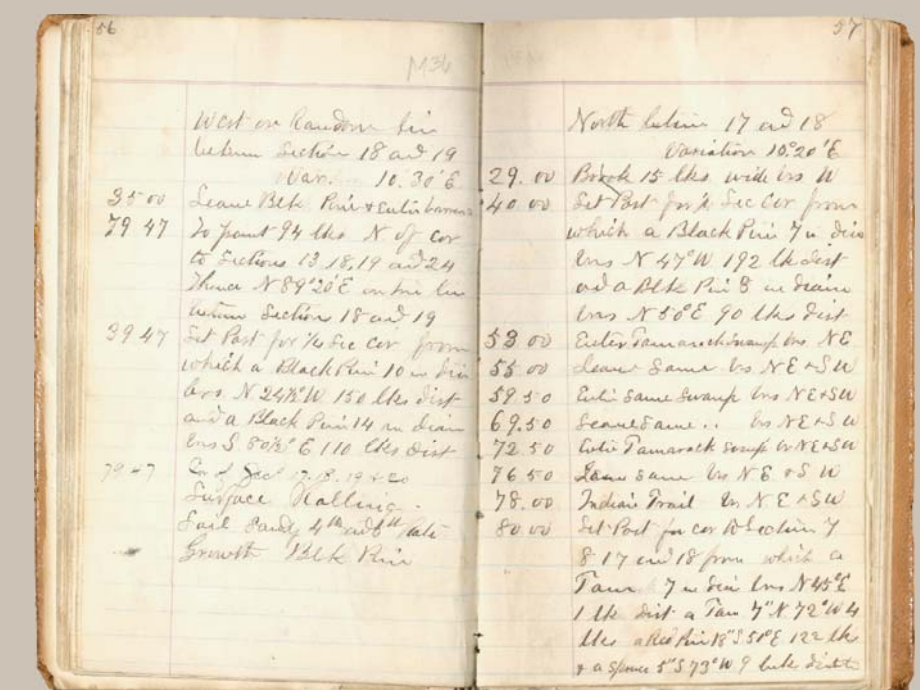 56
M36
West on Random line
between Section 18 and 19
Var. 10.30'E
35 00 Leave Blk Pine & Enter barrens
79 47 To point 94 lks N. of cor
to Sections 13, 18, 19 and 24
Thence N 89°20'E on true line
between Sections 18 and 19
39 47 Set Post for 1/4 Sec Cor from
which a Black Pine 10 in Diam
brs. N 24½°W 150 lks dist
and a Black Pine 14 in diam
brs S. 80½° E 110 lks dist
79 47 Cor of Secs 17. 18. 19 & 20
Surface Rolling.
Soil Sandy 4th and 3rd rate
Growth Blk Pine
57
North between 17 and 18
Variation 10°20'E
29.00 Brook 15 lks wide brs W
40 00 Set Post for ¼ Sec Cor from
which a Black Pine 7 in diam
brs N 47°W 192 lks dist
and a Blk Pine 8 in diam
brs N 50°E 90 lks dist
53.00 Enter Tamarack Swamp brs. NE
55.00 Leave Same brs NE & S W
59.50 Enter same Swamp brs NE & SW
69.50 Leave Same.. brs NE & S W
72.50 Enter Tamarack Swamp brs NE & SW
76 50 Leave same brs N E & S W
78.00 Indian Trail brs N. E & S W
80.00 Set Post for cor to Sections 7
8 17 and 18 from which a
Tam 7 in diam brs N 45°E
1 lk dist a Tam 7" N 72°W 4
lks a Red Pine 18" S 51°E 122 lks
& a Spruce 5" S 73°W 9 links dist